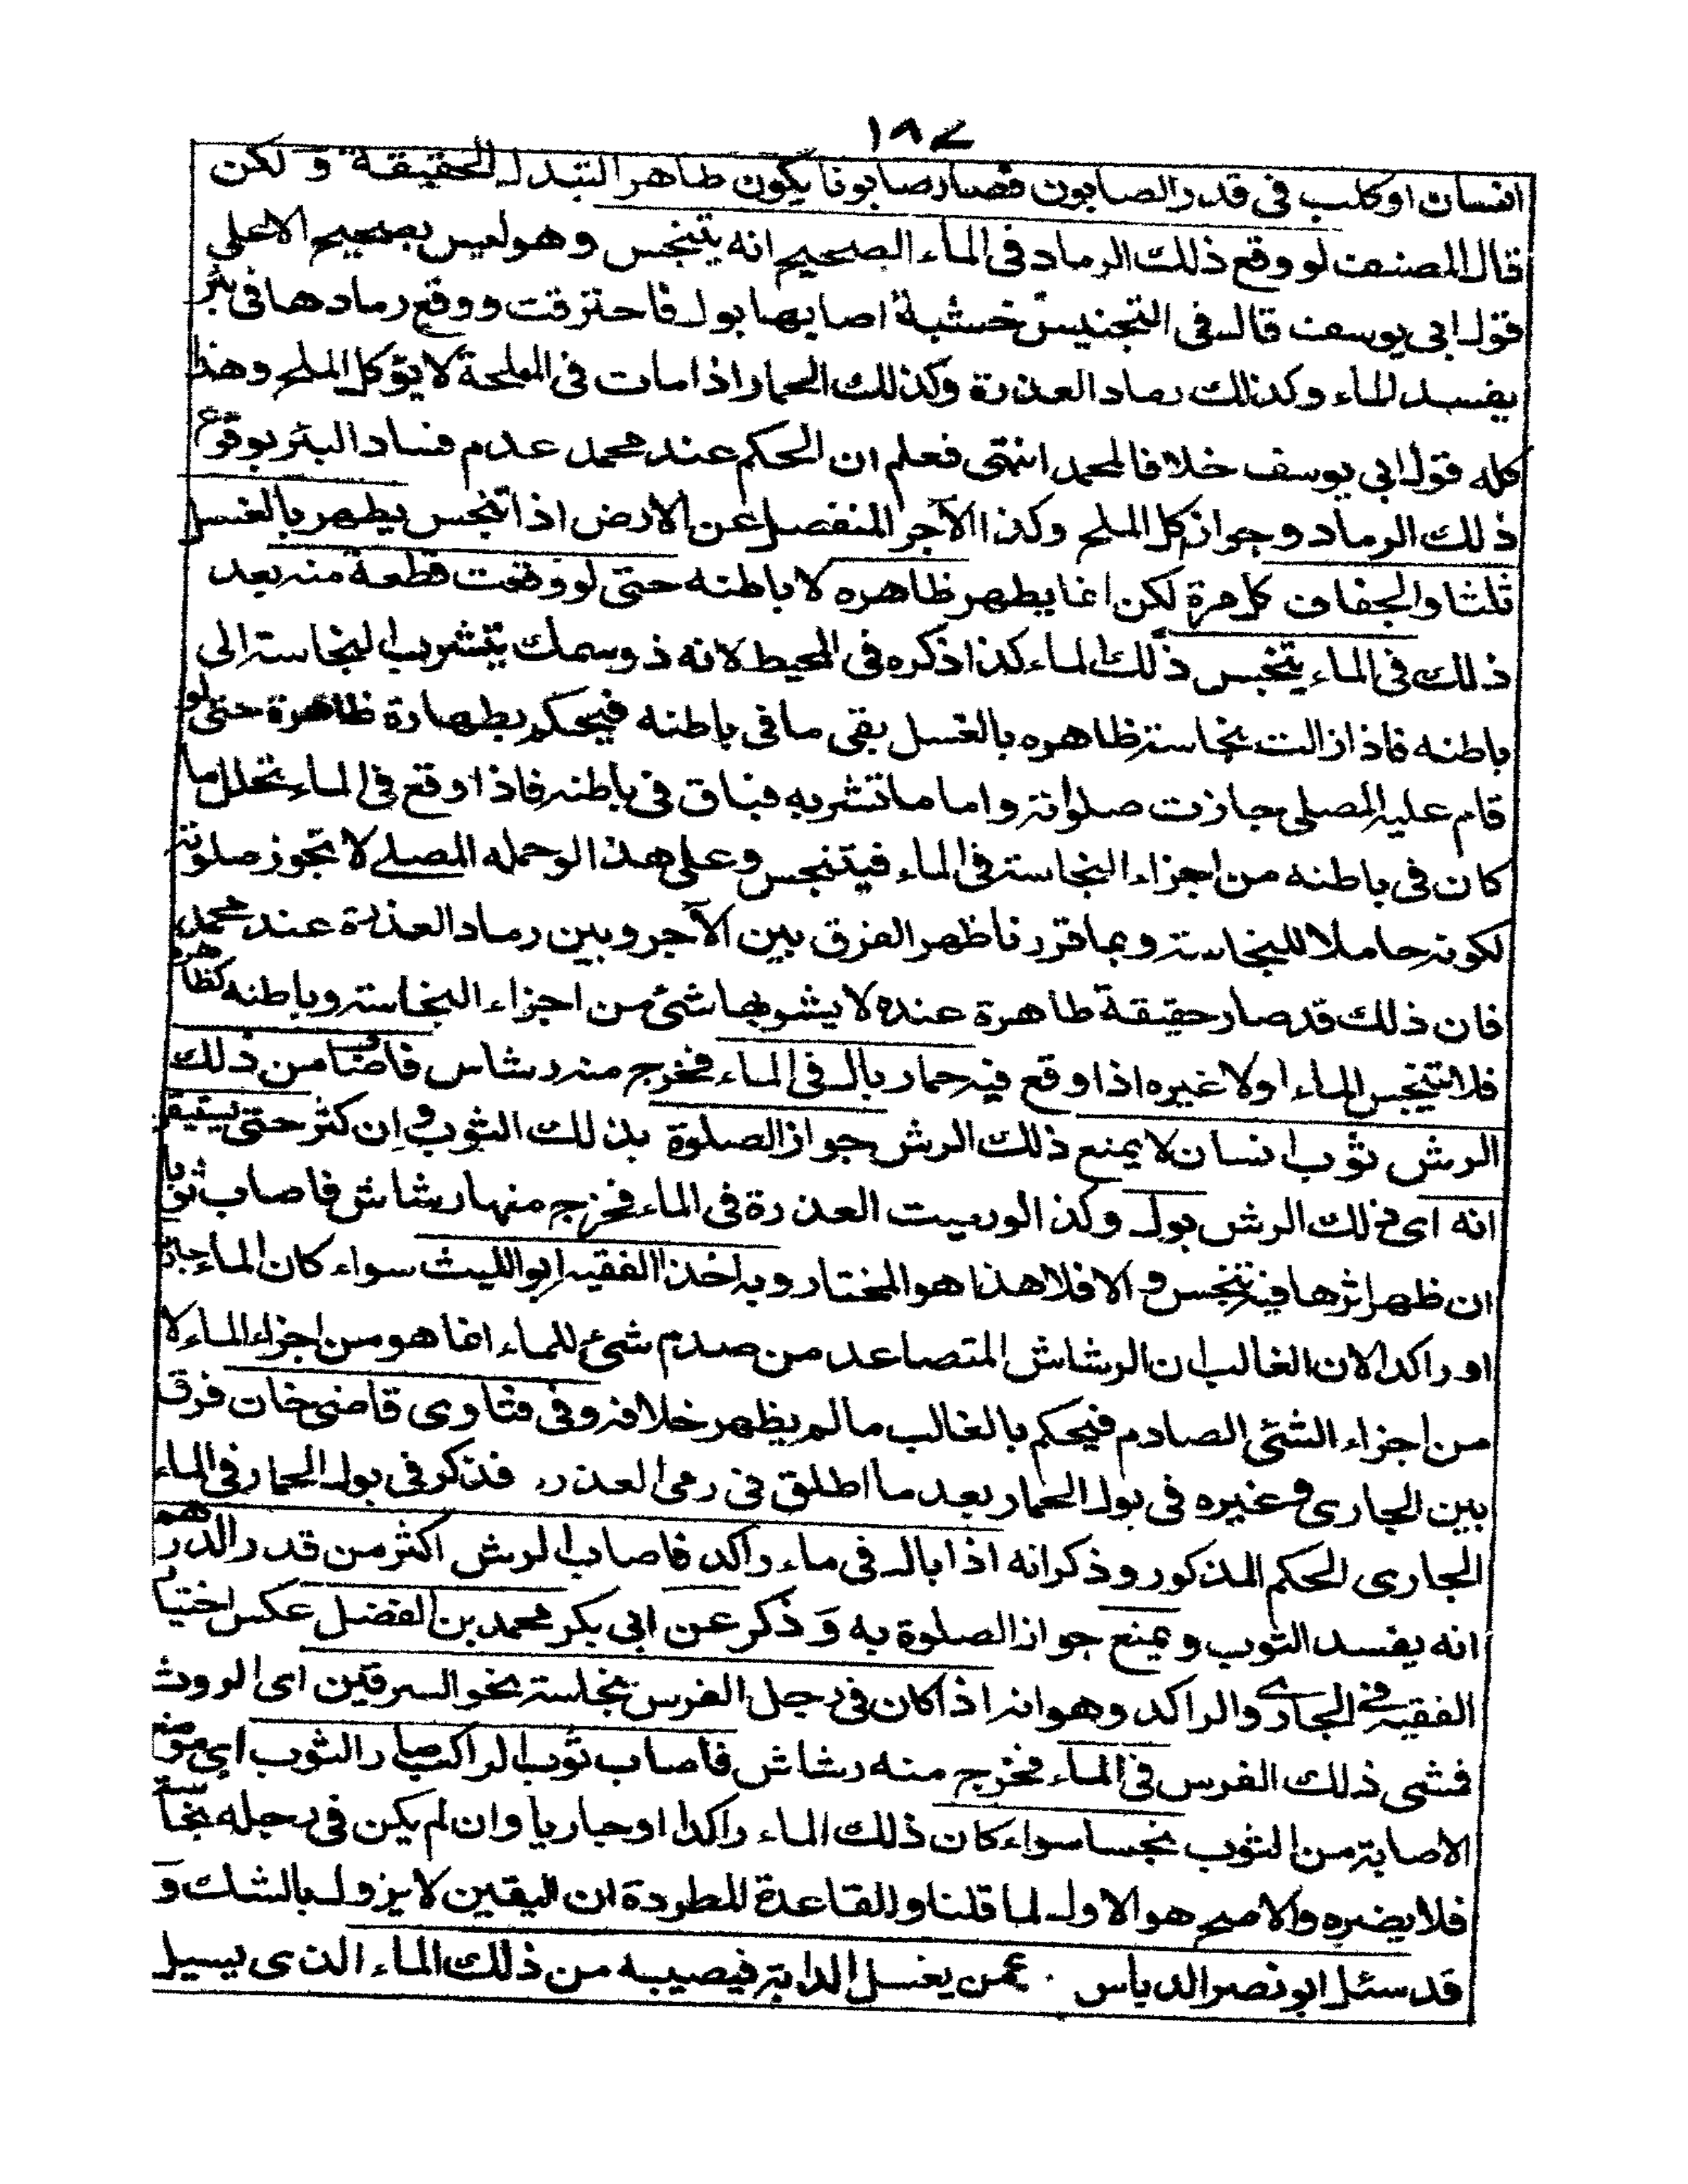 ١٨٧
انسان او كلب فى قدر الصابون فصار صابونا يكون طاهرا لتبدل الحقيقة و لكن
قال المصنف لو وقع ذلك الرماد فى الماء الصحيح انه يتنجس وهو ليس بصحيح الا على
قول ابى يوسف قال فى التجنيس خشبة اصابها بول فاحترقت ووقع رمادها فى بئر
يفسد الماء وكذلك رماد العذرة وكذلك الحمار اذا مات فى المملحة لا يؤكل الملح وهذا
كله قول ابى يوسف خلافا لمحمد انتهى فعلم ان الحكم عند محمد عدم فساد البئر بوقوع
ذلك الرماد وجواز اكل الملح وكذا الآجر المنفصل عن الارض اذا تنجس يطهر بالغسل
ثلثا والجفاف كل مرة لكن انما يطهر ظاهره لا باطنه حتى لو وقعت قطعة منه بعد
ذلك فى الماء يتنجس ذلك الماء كذا ذكره فى المحيط لانه ذو سمك يتشرب النجاسة الى
باطنه فاذا زالت نجاسة ظاهره بالغسل بقى ما فى باطنه فيحكم بطهارة ظاهره حتى لو
قام عليه المصلى جازت صلوته واما ما تشربه فباق فى باطنه فاذا وقع فى الماء تحلل ما
كان فى باطنه من اجزاء النجاسة فى الماء فيتنجس وعلى هذا لو حمله المصلے لا تجوز صلوته
لكونه حاملا للنجاسة وبما قررنا ظهر الفرق بين الآجر وبين رماد العذرة عند محمد
فان ذلك قد صار حقيقة طاهرة عنده لا يشوبها شئ من اجزاء النجاسة وباطنه كظاهره
فلا تنجس الماء ولا غيره اذا وقع فيه حمار بال فى الماء فخرج منه رشاش فاصاب من ذلك
الرش ثوب انسان لا يمنع ذلك الرش جواز الصلوة بذلك الثوب وان كثر حتى يستيقن
انه اى ذلك الرش بول وكذا لو رميت العذرة فى الماء فخرج منها رشاش فاصاب ثوبا
ان ظهر اثرها فيه تنجس و الا فلا هذا هو المختار وبه اخذ الفقيه ابو الليث سواء كان الماء جاريا
او راكدا لان الغالب ان الرشاش المتصاعد من صدم شئ للماء انما هو من اجزاء الماء لا
من اجزاء الشئ الصادم فيحكم بالغالب ما لم يظهر خلافه وفى فتاوى قاضى خان فرق
بين الجارى و غيره فى بول الحمار بعد ما اطلق فى رمى العذرة فذكر فى بول الحمار فى الماء
الجارى الحكم المذكور وذكر انه اذا بال فى ماء راكد فاصاب الرش اكثر من قدر الدرهم
انه يفسد الثوب ويمنع جواز الصلوة به وذكر عن ابى بكر محمد بن الفضل عكس اختيار
الفقيه فى الجارى والراكد وهو انه اذا كان فى رجل الفرس نجاسة نحو السرقين اى الروث
فمشى ذلك الفرس فى الماء فخرج منه رشاش فاصاب ثوب الراكب صار الثوب اى موضع
الاصابة من الثوب نجسا سواء كان ذلك الماء راكدا او جاريا وان لم يكن فى رجله نجاسة
فلا يضره والاصح هو الاول لما قلنا وللقاعدة المطردة ان اليقين لا يزول بالشك و
قد سئل ابو نصر الدباس عمن يغسل الدابة فيصيبه من ذلك الماء الذى يسيل